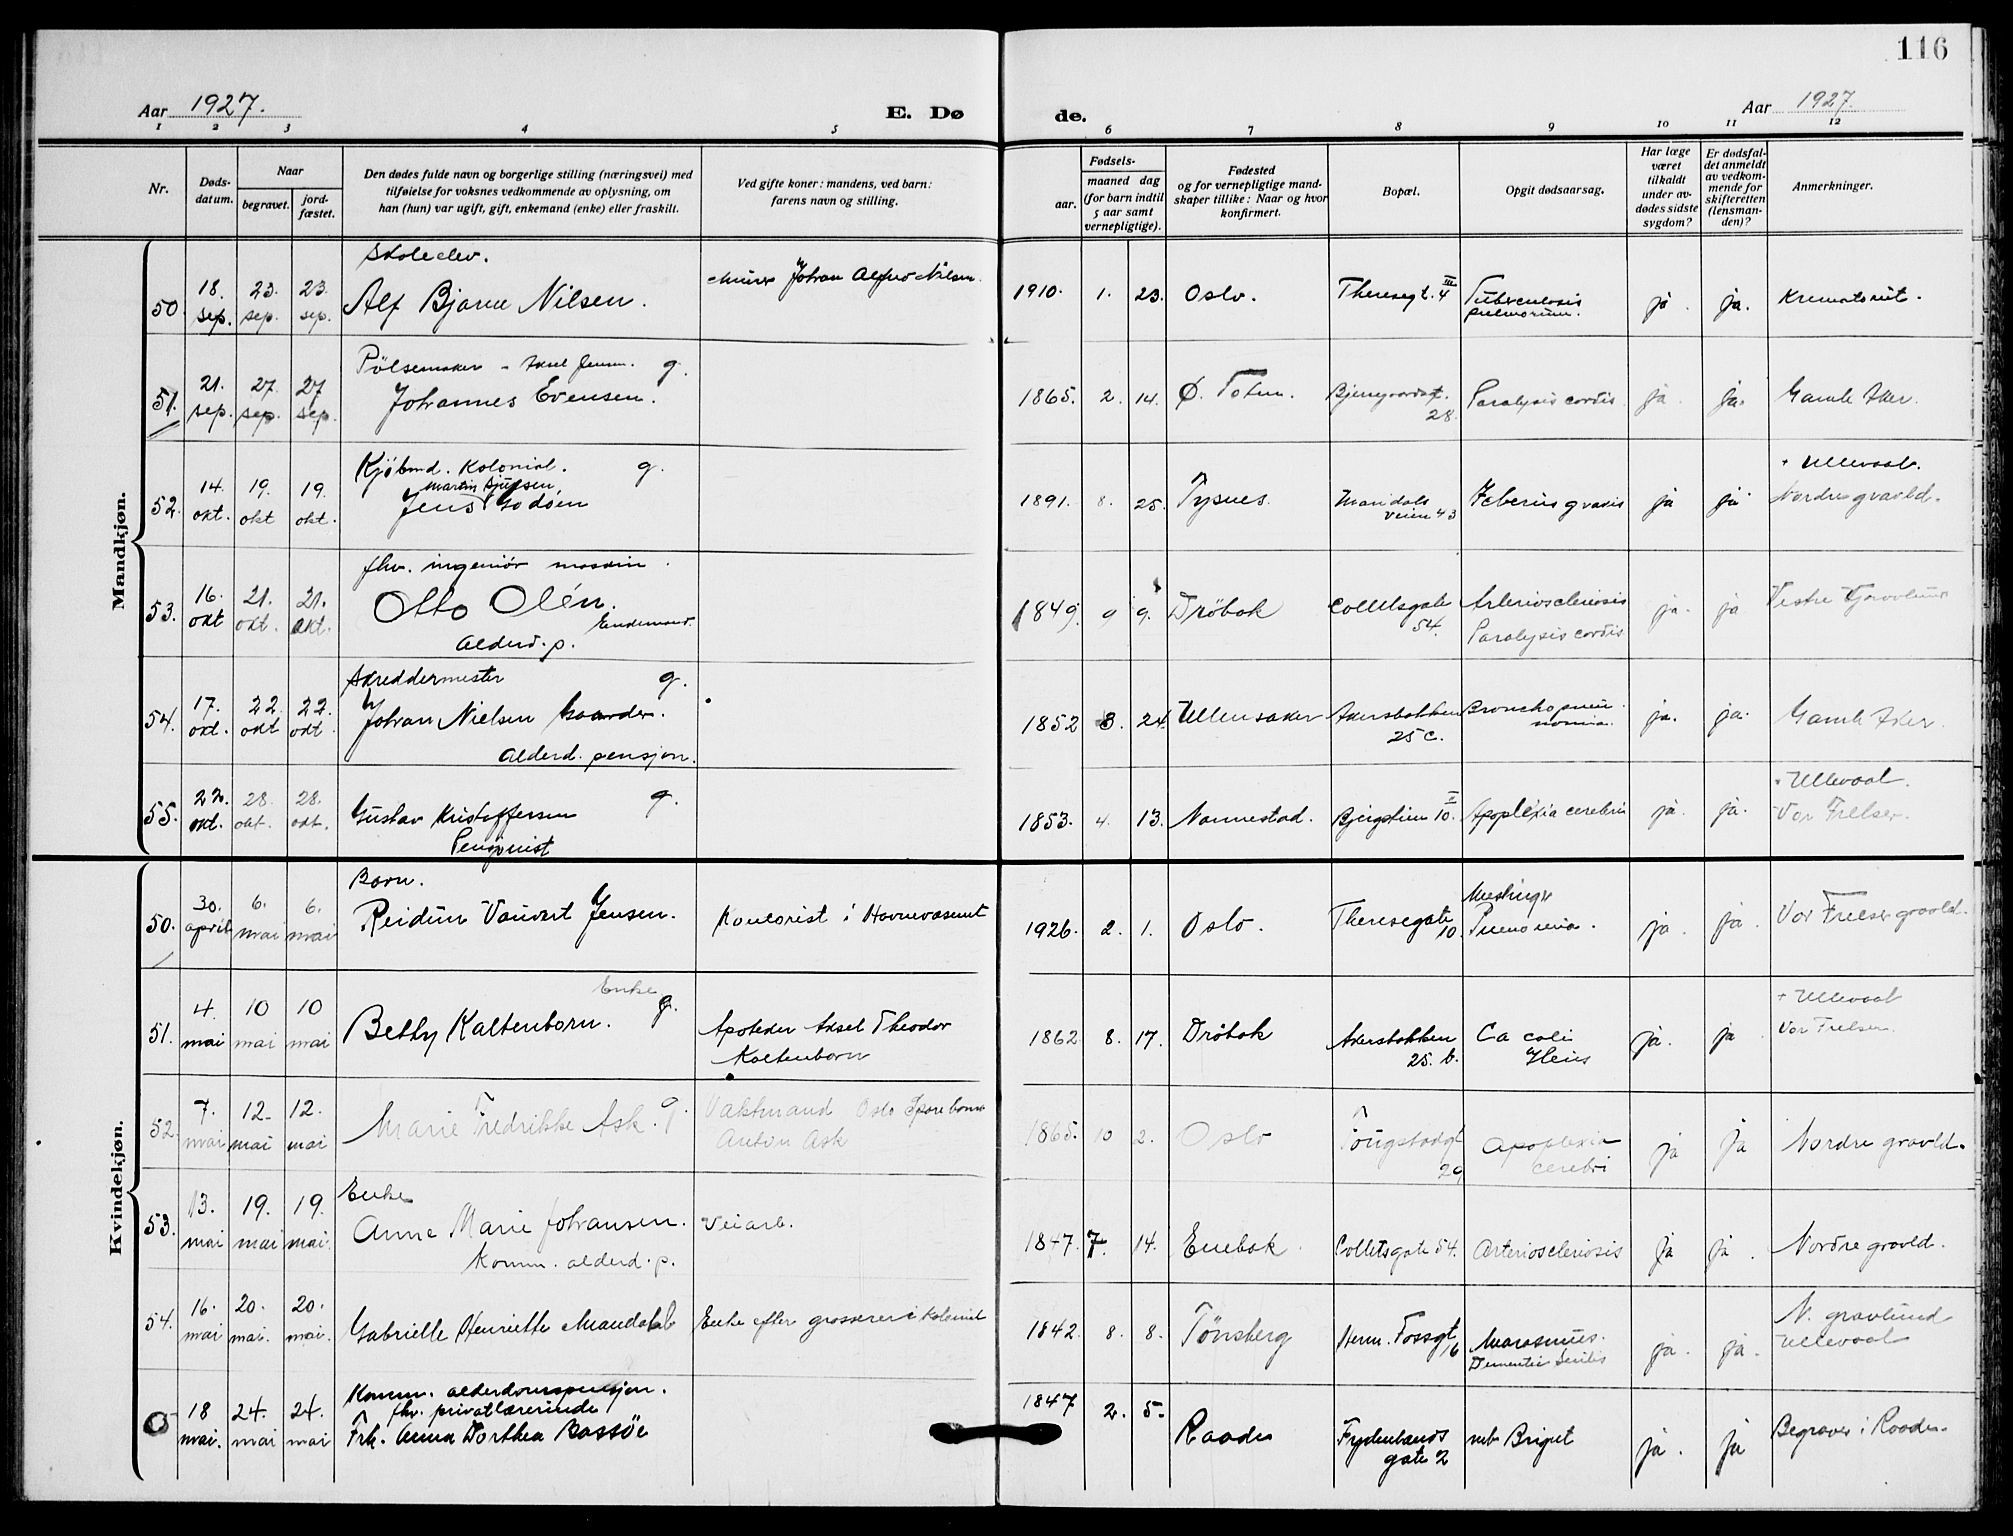 116
Aar 1927.
E. Dø
de.
Aar 1927.
1 2 3 4 5 6 7 8 9 10 11 12
Nr.
Døds-
datum.
Naar
begravet.
jord-
fæstet.
Den dødes fulde navn og borgerlige stilling (næringsvei) med
tilføielse for voksnes vedkommende av oplysning, om
han (hun) var ugift, gift, enkemand (enke) eller fraskilt.
Ved gifte koner: mandens, ved barn:
farens navn og stilling.
Fødsels-
aar.
maaned dag
(for barn indtil
5 aar samt
vernepligtige).
Fødested
og for vernepligtige mand-
skaper tillike: Naar og hvor
konfirmert.
Bopæl.
Opgit dødsaarsag.
Har læge
været
tilkaldt
under av-
dødes sidste
sygdom?
Er dødsfal-
det anmeldt
av vedkom-
mende for
skifteretten
(lensman-
den)?
Anmerkninger.
Mandkjøn.
Skoleelev.
50. 18. sep. 23. sep. 23. sep. Alf Bjarne Nilsen. Murer Johan Alfred Nilsen. 1910. 1. 23. Oslo. Theresegt. 4 III Tuberculosis pulmorum. ja. ja. Krematoriet.
Pölsemaker - Aksel Jensen. g.
51. 21. sep. 27. sep. 27. sep. Johannes Evensen. 1865. 2. 14. Ø. Toten. 28. Paralysis cordis. ja. ja. Gamle Aker.
Kjøbmd. Kolonial. g.
Martin Sjursen
52. 14. okt. 19. okt 19. okt. Jens Godöen 1891. 8. 25. Tysnes. Maridals veien 43 Icterus gravis ja ja + Ullevaal. Nordre gravld.
fhv. ingeniör maskin.
53. 16. okt 21. okt. 21. okt. Otto Olén. Enkemand. 1849. 9 9. Dröbak Colletsgate 54. Arteriosclerosis Paralysis cordis ja. ja Vestre Gravlund
Alderd. p.
Skreddermester g.
54. 17. okt. 22. okt 22. okt. Johan Nielsen Gaarder. 1852 3. 24. Ullensaker Akersbakken 25 C. Bronchopneumonia. ja. ja. Gamle Aker.
Alderd. pensjon.
55. 22. okt. 28. okt. 28. okt. Gustav Kristoffersen g. 1853. 4. 13. Nannestad. Bjergstien 10. II Apoplexia cerebri ja. ja. + Ullevaal. Vor Frelser.
Kvindekjøn.
Barn.
50. 30. april 6. mai 6. mai Reidun Vauvert Jensen. Kontorist i Havnevæsenet 1926. 2. 1. Oslo. Theresegate 10. Meslinger Pneumonia. ja. ja. Vor Frelser gravld.
Enke
51. 4. mai 10 mai 10 mai Betty Kaltenborn. g. Apoteker Aksel Theodor Kaltenborn 1862 8. 17. Dröbak Akersbakken 25. b. Ca coli Ileus ja. ja + Ullevaal Vor Frelser.
52. 7. mai 12. mai 12. mai Marie Fredrikke Ask. g. Vaktmand Oslo Sparebank Anton Ask 1865. 10 2. Oslo Tougstadgt 29 Apoplexia cerebri ja ja Nordre gravld.
Enke
53. 13. mai 19. mai 19. mai. Anne Marie Johansen. Veiarb. 1847. 7. 14. Enebak. Colletsgate 54. Arteriosclerosis ja ja. Nordre gravld.
Komm. alderd. p.
54. 16. mai 20. mai. 20. mai. Gabrielle Henriette Enke efter grosserer i Kolonial 1842. 8. 8. Tönsberg Herm. Fossgt 16 Marasmus. Dementia senilis ja. ja. N. gravlund Ullevaal
Komm. alderdomspensjon.
fhv. privatlærerinde
18 mai. 24. mai 24. mai Frk. Anna Dorthea Bassöe 1847 2. 5. Raade Frydenlunds gate 2 mb Brigt ja. ja Begraves i Raade.